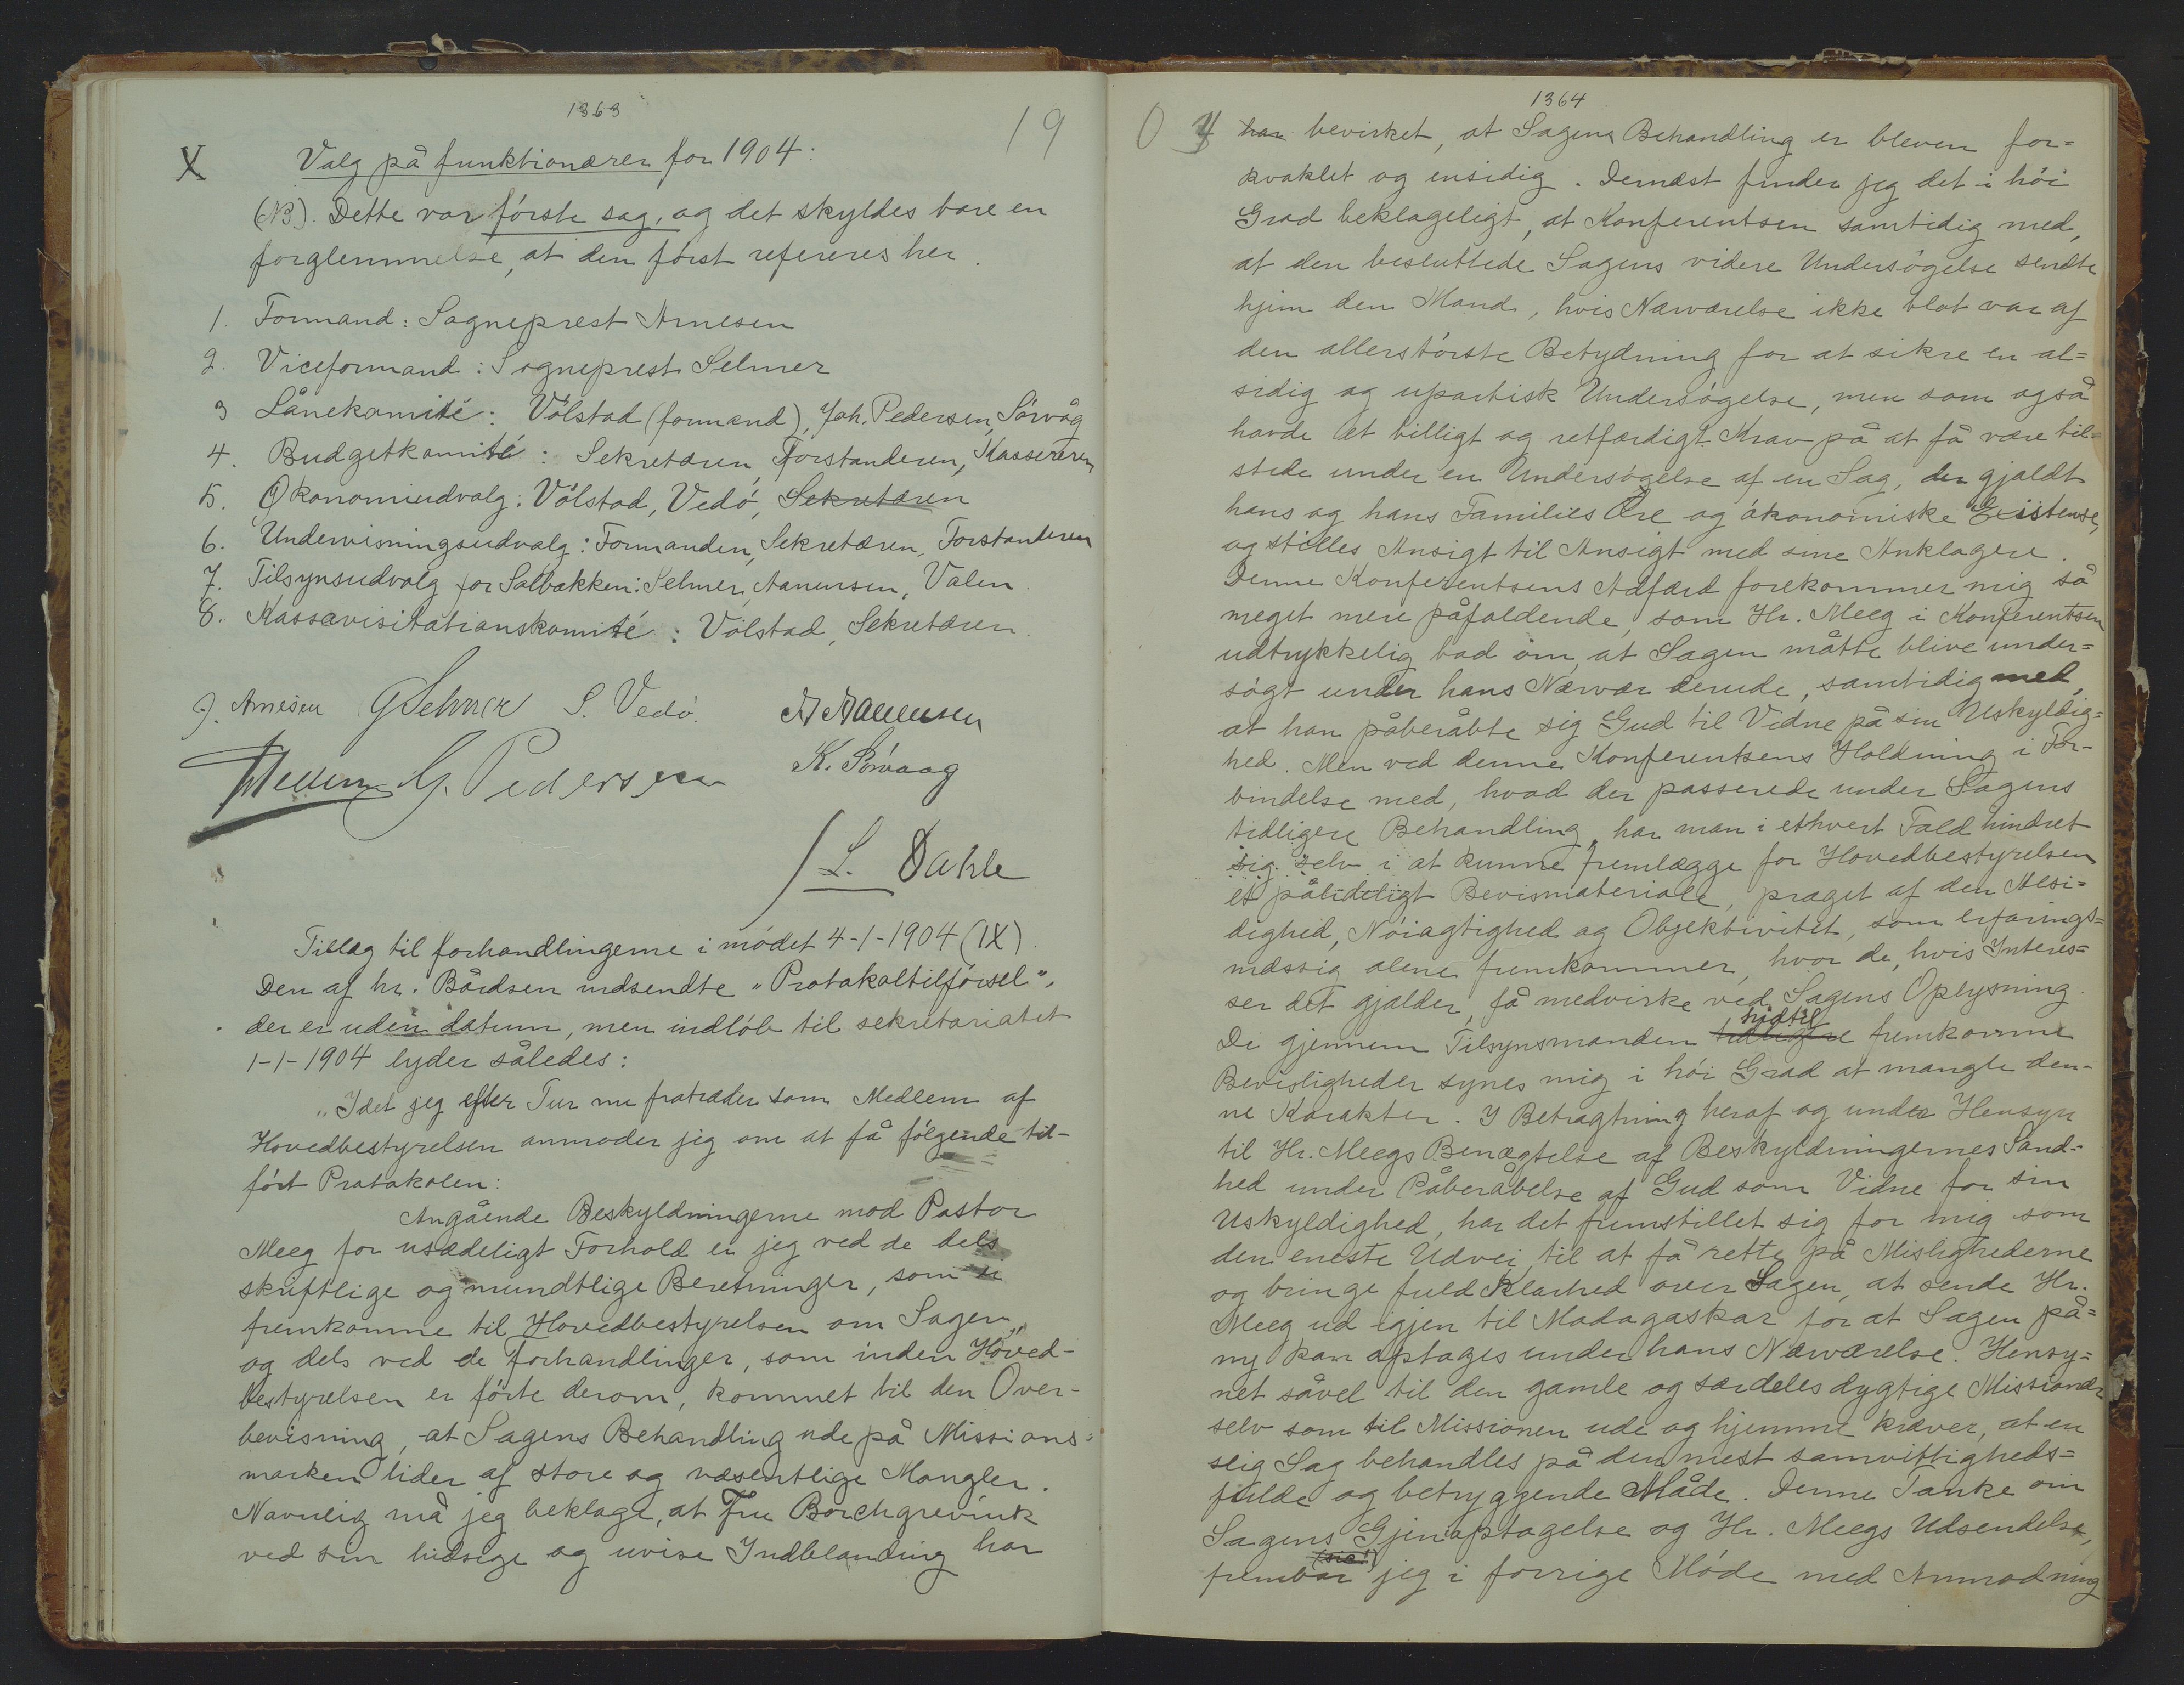 1363
19
X
Valg på funktionærer for 1904:
(NB). Dette var første sag, og det skyldes bare en
forglemmelse, at den først refereres her.
1. Formand: Sogneprest Arnesen
2. Viceformand: Sogneprest Selmer
3 Lånekomité: Vølstad (formand), Joh. Pedersen, Sørvåg
4. Budgetkomité: Sekretæren, Forstanderen, Kassereren
5. Økonomiudvalg: Vølstad, Vedø, Sekretæren
6. Undervisningsudvalg: Formanden, Sekretæren, Forstanderen
7. Tilsynsudvalg for Solbakken: Selmer, Aanensen, Valen
8. Kassavisitationskomité: Vølstad, Sekretæren.
J. Arnesen G Selmer S. Vedø. A Aanensen
G. Pedersen K. Sørvaag
L. Dahle
Tillæg til forhandlingerne i mødet 4-1-1904 (IX).
Den af hr. Bårdsen indsendte "Protokoltilførsel",
der er uden datum, men indløb til sekretariatet
1-1-1904 lyder således:
"Idet jeg efter Tur nu fratræder som Medlem af
Hovedbestyrelsen anmoder jeg om at få følgende til-
ført Protokolen:
Angående Beskyldningerne mod Pastor
Meeg for usædeligt Forhold er jeg ved de dels
skriftlige og mundtlige Beretninger, som er
fremkomne til Hovedbestyrelsen om Sagen,
og dels ved de forhandlinger, som inden Hoved-
bestyrelsen er førte derom, kommet til den Over-
bevisning, at Sagens Behandling ude på Missions=
marken lider af store og væsentlige Mangler.
Navnlig må jeg beklage, at Fru Borchgrevink
ved sin hidsige og uvise Indblanding har
1364
har bevirket, at Sagens Behandling er bleven for=
kvaklet og ensidig. Dernæst finder jeg det i høi
Grad beklageligt, at Konferentsen samtidig med,
at den besluttede Sagens videre Undersøgelse sendte
hjem den Mand, hvis Nærværelse ikke blot var af
den allerstørste Betydning for at sikre en al=
sidig og upartisk Undersøgelse, men som også
havde et billigt og retfærdigt Krav på at få være til=
stede under en Undersøgelse af en Sag, der gjaldt
hans og hans Families Ære og økonomiske Existense,
og stilles Ansigt til Ansigt med sine Anklagere.
Denne Konferentsens Adfærd forekommer mig så
meget mere påfaldende, som Hr. Meeg i Konferentsen
udtrykkelig bad om, at Sagen måtte blive under=
søgt under hans Nærvær derude, samtidig med,
at han påberåbte sig Gud til Vidne på sin Uskyldig=
hed. Men ved denne Konferentsens Holdning i For-
bindelse med, hvad der passerede under Sagens
tidligere Behandling, har man i ethvert Fald hindret
sig selv i at kunne fremlægge for Hovedbestyrelsen
et pålideligt Bevismateriale, præget af den Alsi=
dighed, Nøiagtighed og Objektivitet, som erfarings=
mæssig alene fremkommer, hvor de, hvis Interes=
ser det gjælder, få medvirke ved Sagens Oplysning.
De gjennem Tilsynsmanden tidligere hidtil fremkomne
Bevisligheder synes mig i høi Grad at mangle den-
ne Karakter. I Betragtning heraf og under Hensyn
til Hr. Meegs Benægtelse af Beskyldningernes Sand=
hed under Påberåbelse af Gud som Vidne for sin
Uskyldighed, har det fremstillet sig for mig som
den eneste Udvei til at få rette på Mislighederne
og bringe fuld Klarhed over Sagen, at sende Hr.
Meeg ud igjen til Madagaskar for at Sagen på=
ny kan optages under hans Nærværelse. Hensy=
net såvel til den gamle og særdeles dygtige Missionær
selv som til Missionen ude og hjemme kræver, at en
slig Sag behandles på den mest samvittigheds=
fulde og betryggende Måde. Denne Tanke om
Sagens Gjenoptagelse og Hr. Meegs Udsendelse,
frembar (sic!) jeg i forrige Møde med Anmodning